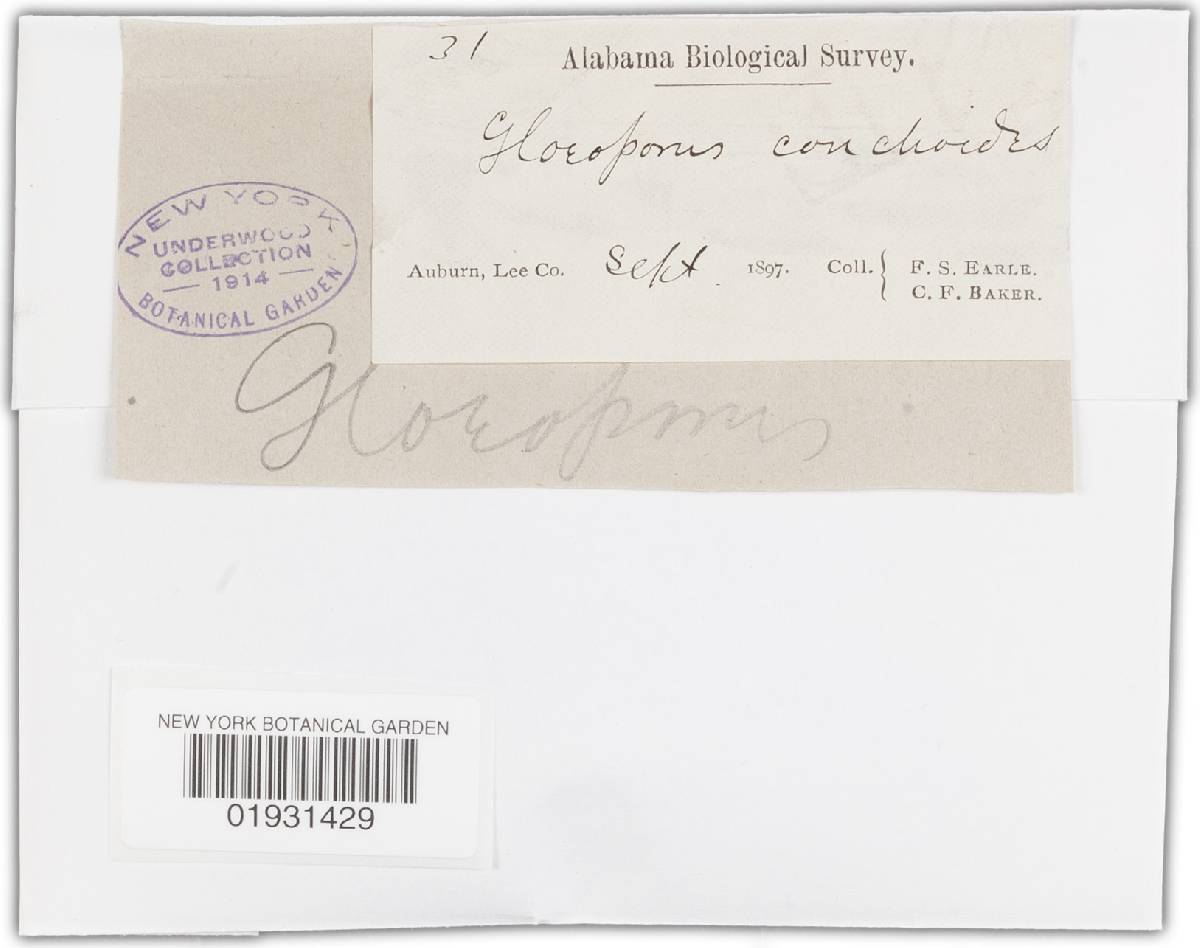 31
Alabama Biological Survey.
Gloeoporus conchoides
Auburn, Lee Co. Sept. 1897. Coll. { F. S. EARLE.
C. F. BAKER.
NEW YORK
UNDERWOOD
COLLECTION
— 1914 —
BOTANICAL GARDEN
Gloeoporus
NEW YORK BOTANICAL GARDEN
01931429